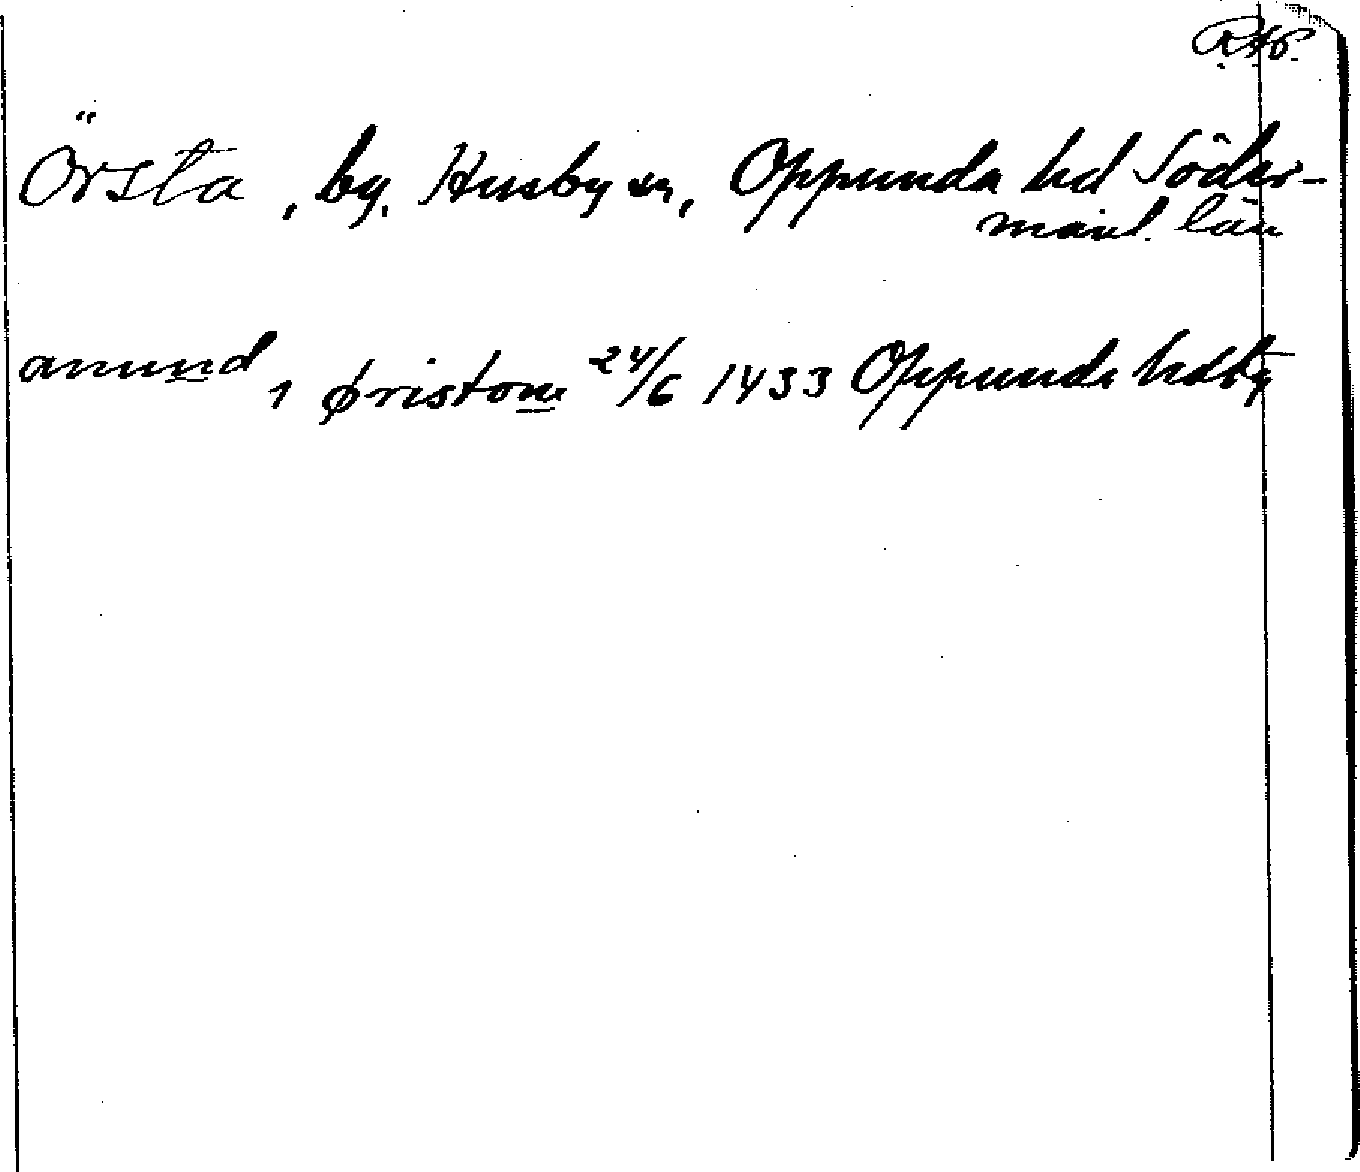 Örsta, by, Husby sn, Oppunda hd Söder-
manl. län
anund, i øristom 24/6 1433 Oppunda hdtg